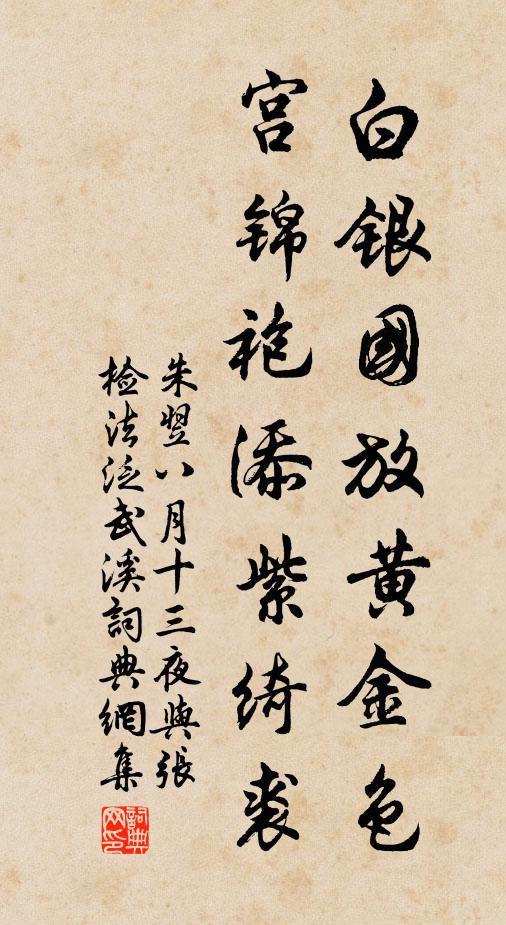 白银國放黄金色
宫锦袍添紫绮裘
朱翌八月十三夜與張
检法泛武溪詞典網集
詞典
网印